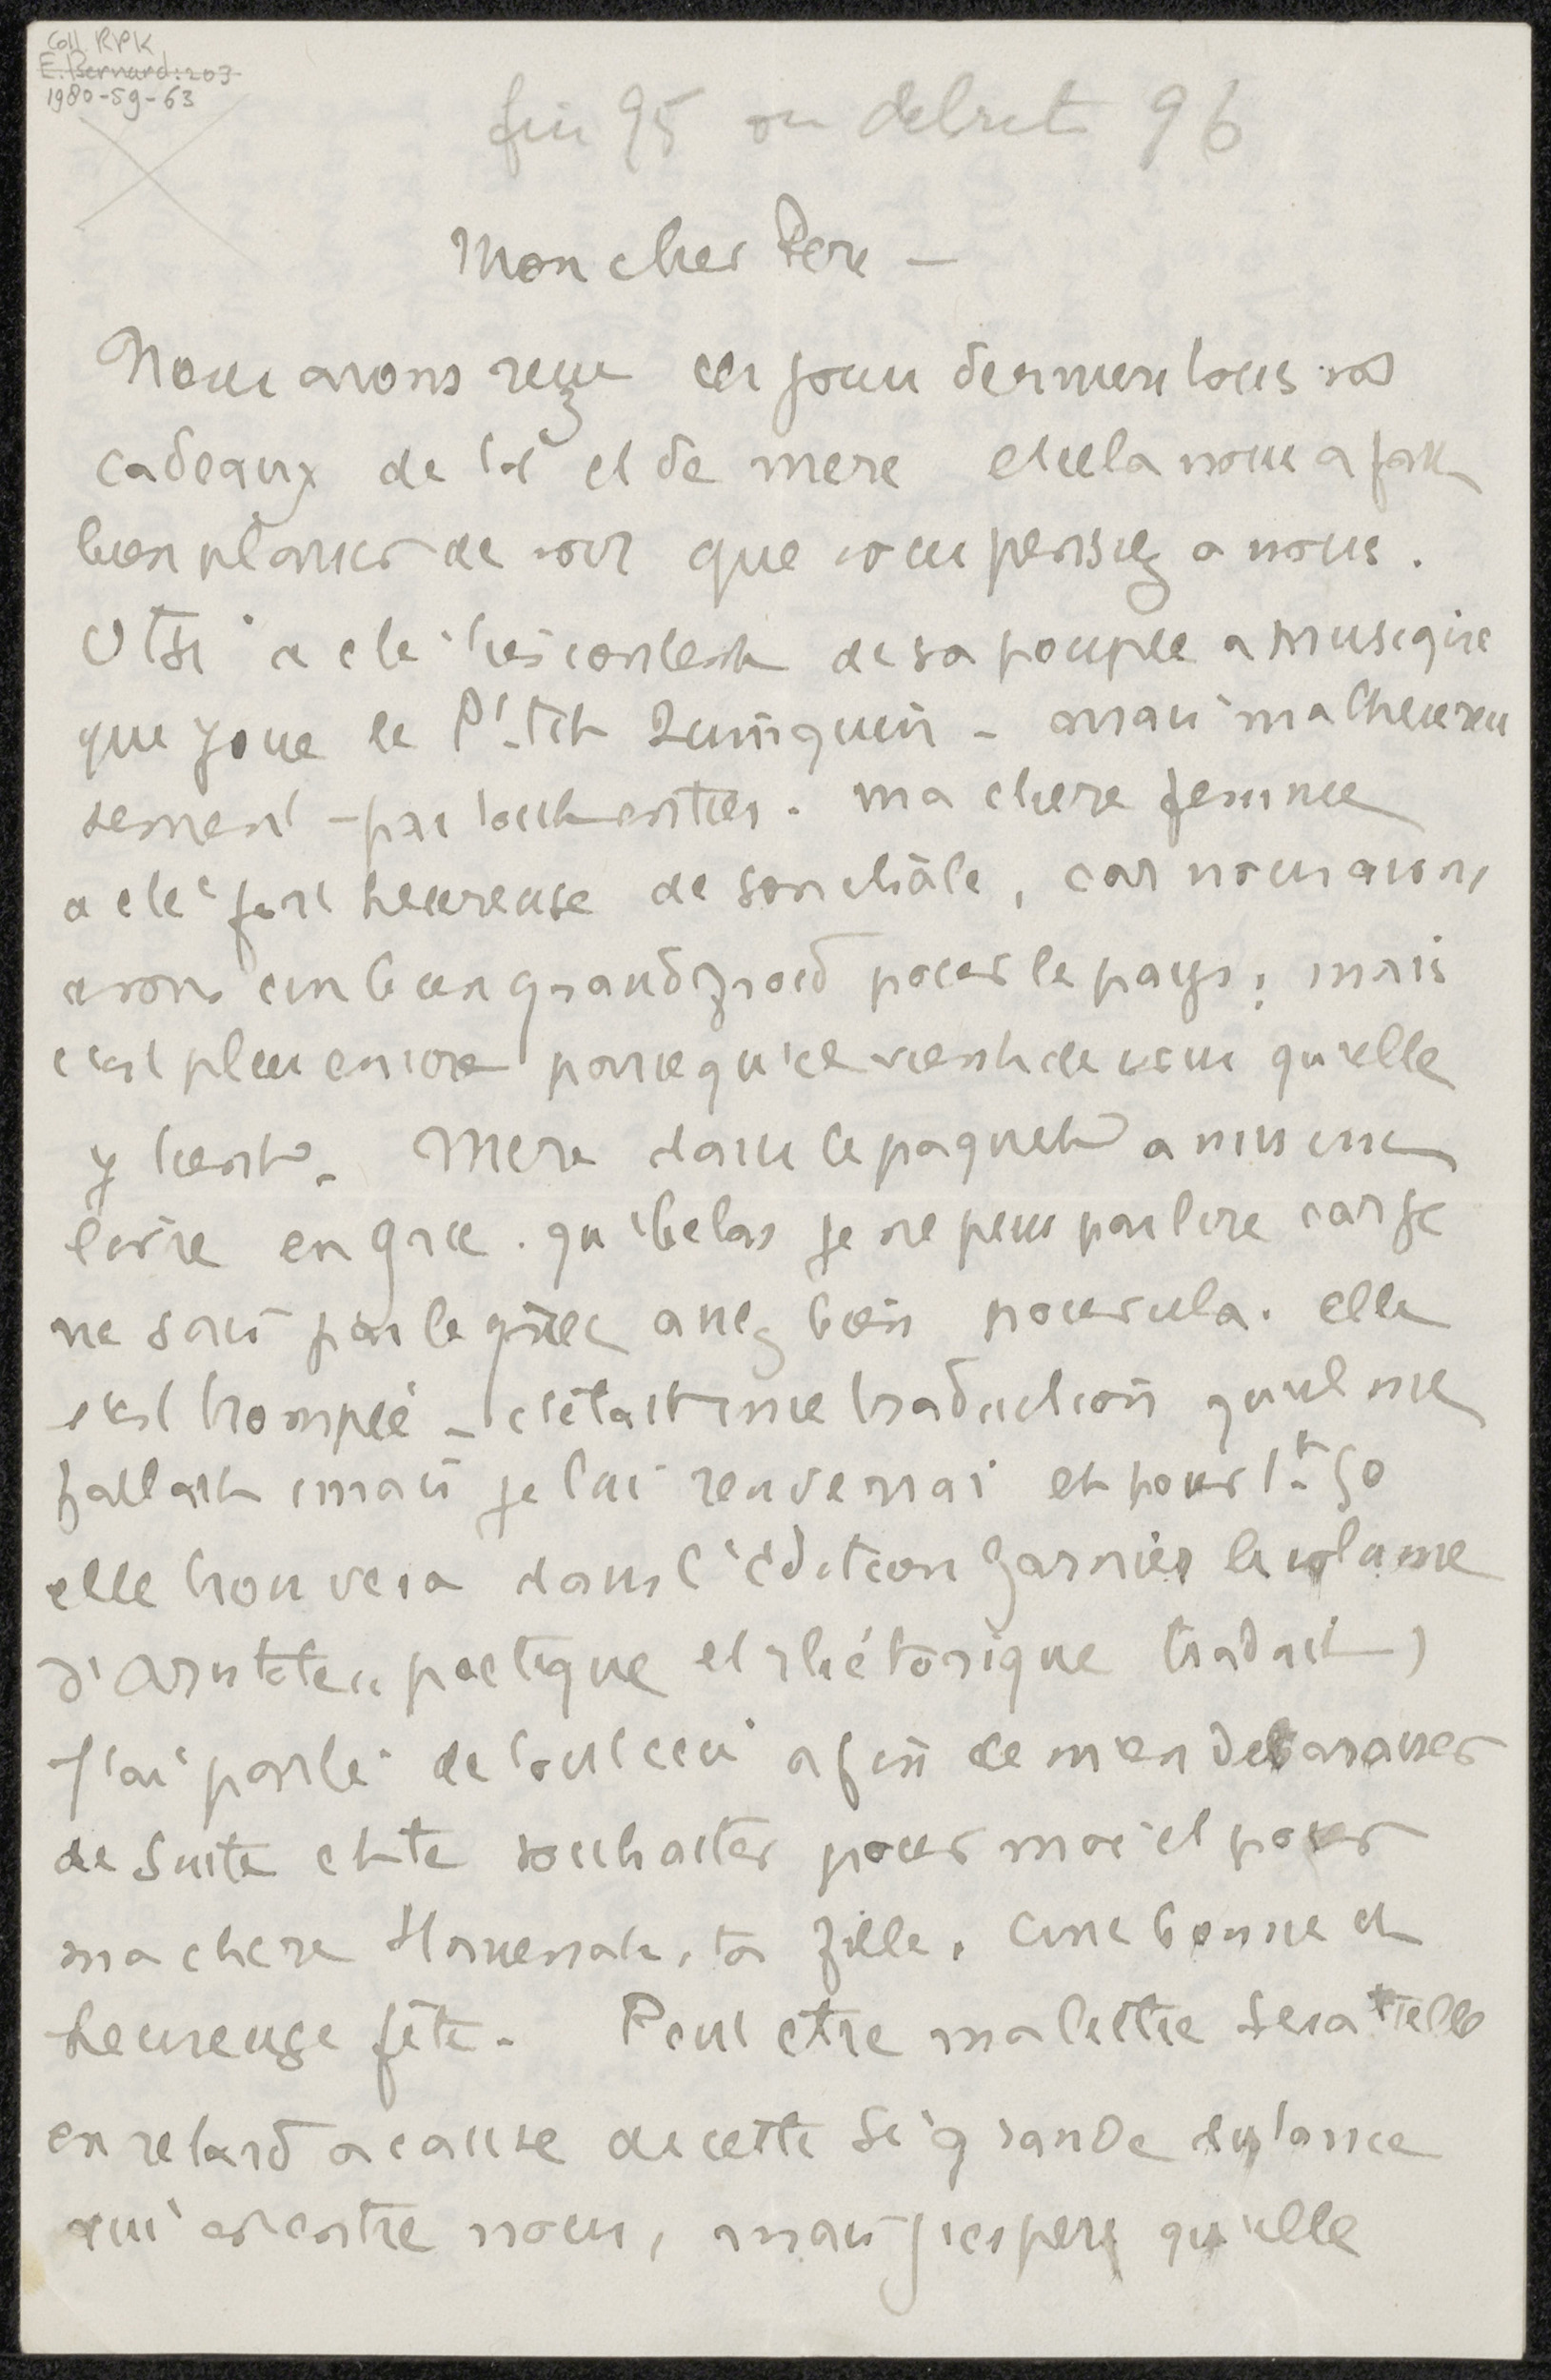 Coll RPK
E. Bernard: 203
1980-59-63
fin 95 ou debut 96
Mon cher Père –
Nous avons reçu ces jours derniers tous vos
cadeaux de toi et de mere et cela nous a fait
bien plaisir de voir que vous pensiez a nous.
Otsi a été très contente de sa poupée a musique
que joue le P'tit Quinquin – mais malheureu
sement – pas tout entier. ma chere femme
a été fort heureuse de son châle, car nous avons
avons un bien grand froid pour le pays; mais
c'est plus encore parce qu'il vient de vous qu'elle
y tient. Mere dans le paquet a mis un
livre en grec. qu'helas je ne peux pas lire car je
ne sais pas le grec assez bien pour cela. elle
s'est trompée – c'était une traduction qu'il me
fallait mais je lui renverrai et pour 1f 50
elle trouvera dans l'édition Garnier le volume
d'Aristote (poetique et rhétorique traduit)
J'ai parlé de tout ceci afin de m'en debarasser
de suite et te souhaiter pour moi et pour
ma chere Hanenah, ta fille, une bonne et
heureuse fête. Peut etre ma lettre sera t'elle
en retard a cause de cette si grande distance
qui est entre nous, mais j'espere qu'elle